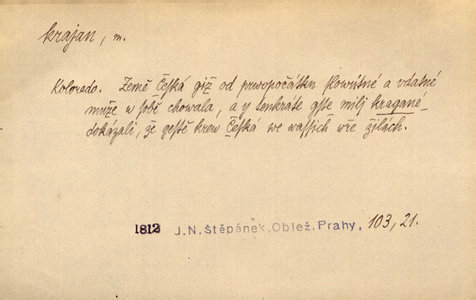 krajan, m.
Kolovedo. Země Česká giž od prwopočátku slowútné a vdatné
muže w sobě chowala, a y tenkráte gste milj kragané
dokázali, že gesstě krew Česká we wassich wře žilách.
1812 J. N. Štěpánek, Oblež. Prahy, 103, 21.